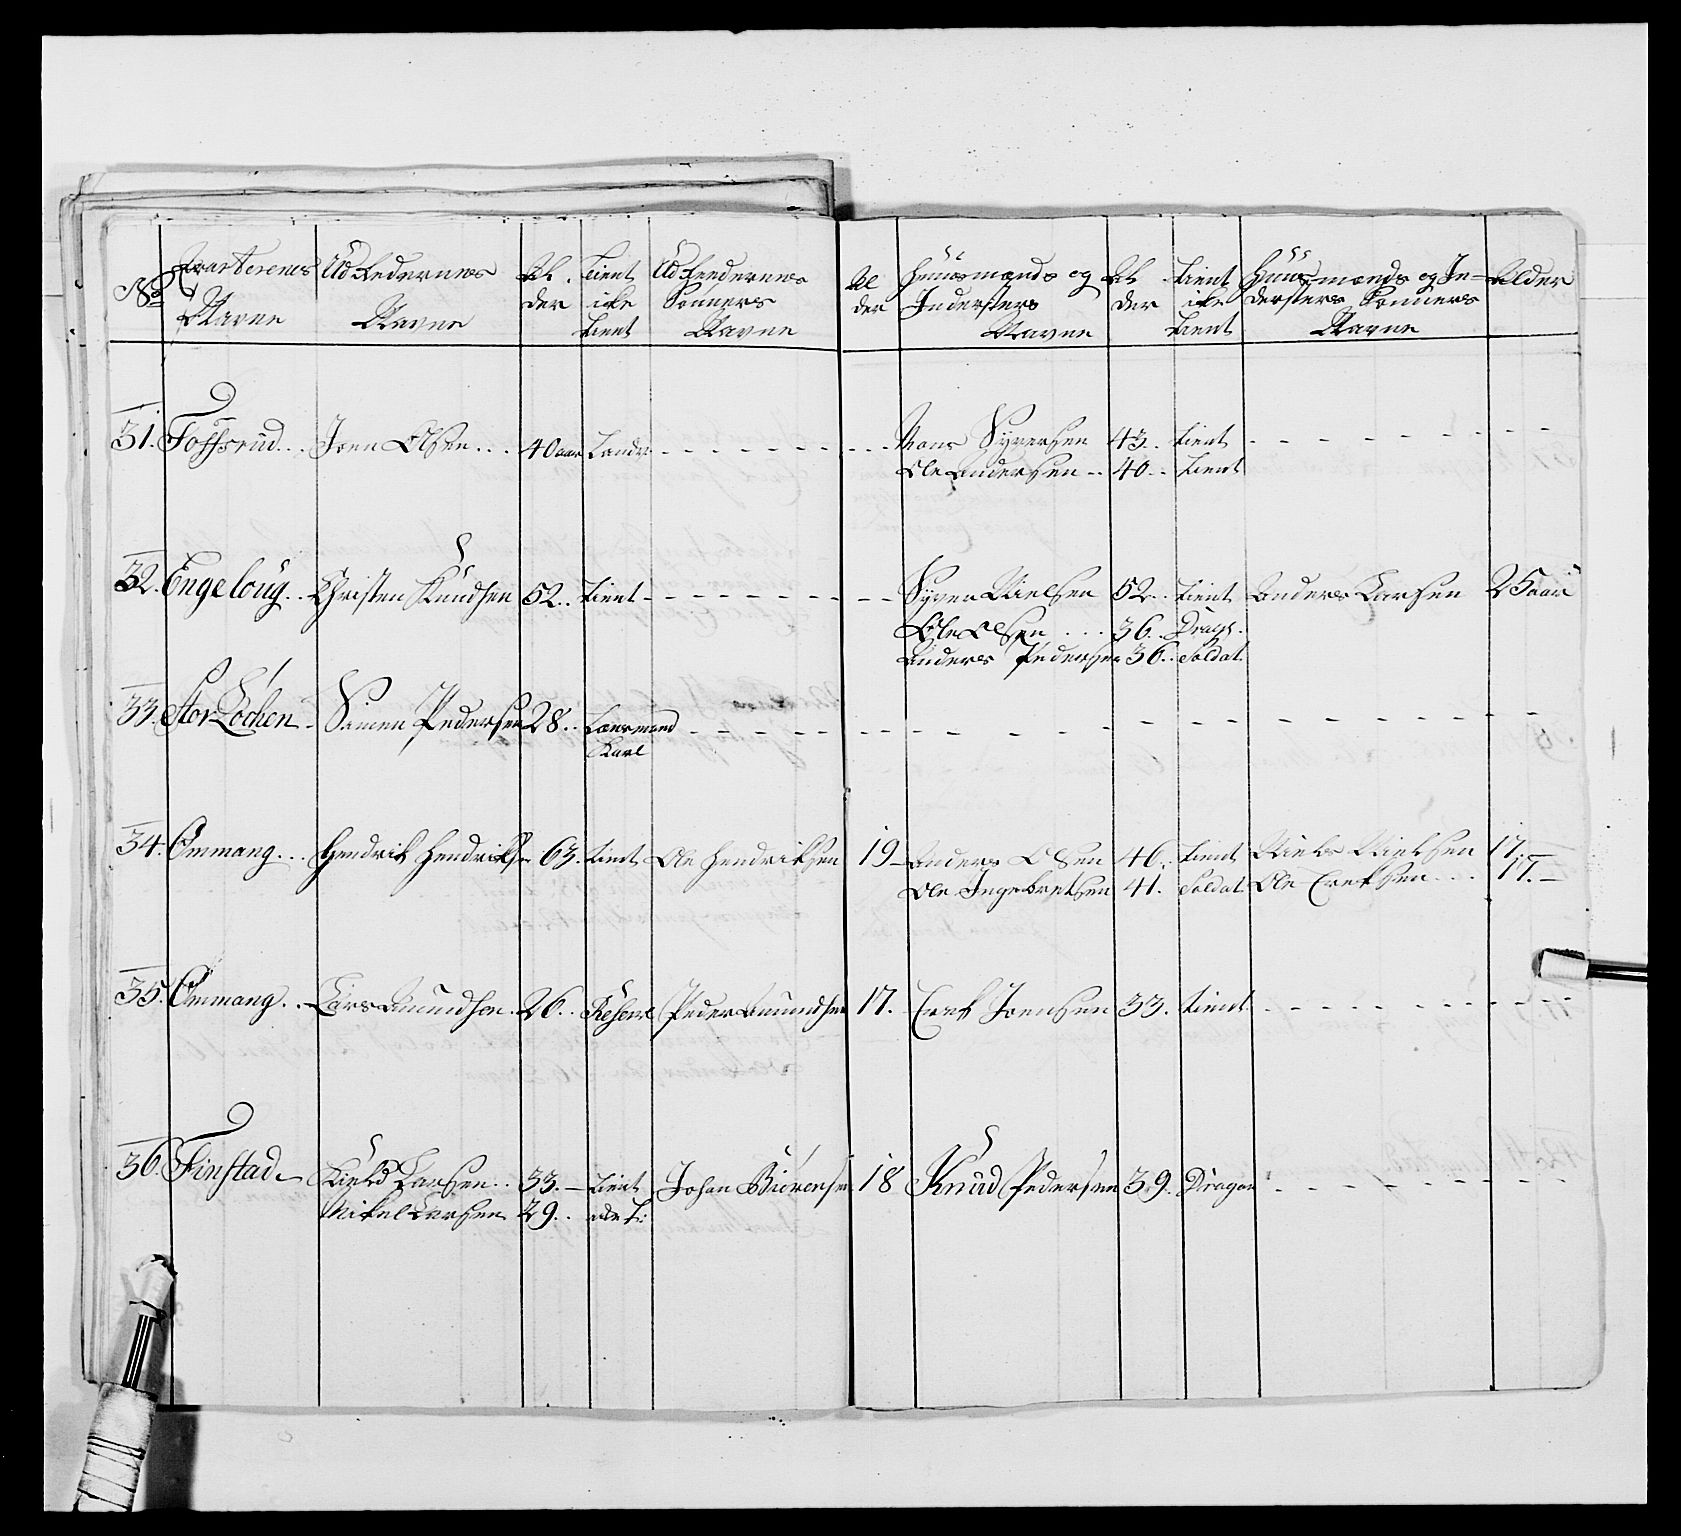 No Qvarterenes Navne | Udredernes Navne | Al der | Tient icke tient | Udreedernes Sønners Navne | Al der | Huusmænds og Indersters Navne | Al der | Tient icke tient | Huusmænds og Indersters Sønners Navne | Alder
31. Fossrud | Joen Olsen | 40 aar | Landv | Hans Syversen | 43 | tient
Ole Andersen | 40 | tient
32. Engeloug | Christen Knudsen | 52 | tient | Syver Nielsen | 52 | tient | Anders Larsen | 25 aar
Ole Olsen | 36 | Drag:
Anders Pedersen | 36 | Soldat
33. Stor Løchen | Simen Pedersen | 28 | Lænsmand Karl
34. Ommang | Hendrik Hendriks: | 63 | tient | Ole Hendriksen | 19 | Anders Olsen | 46 | tient | Niels Nielsen | 17
Ole Ingebretsen | 41 | Soldat | Ole Erichsen | 17
35. Ommang | Lars Amundsen | 26 | Reserv | Peder Amundsen | 17 | Erik Joensen | 33 | tient
36. Finstad | Kield Larsen | 33 | tient | Johan Biørensen | 18 | Knud Pedersen | 39 | Dragon
Mikel Larsen | 29